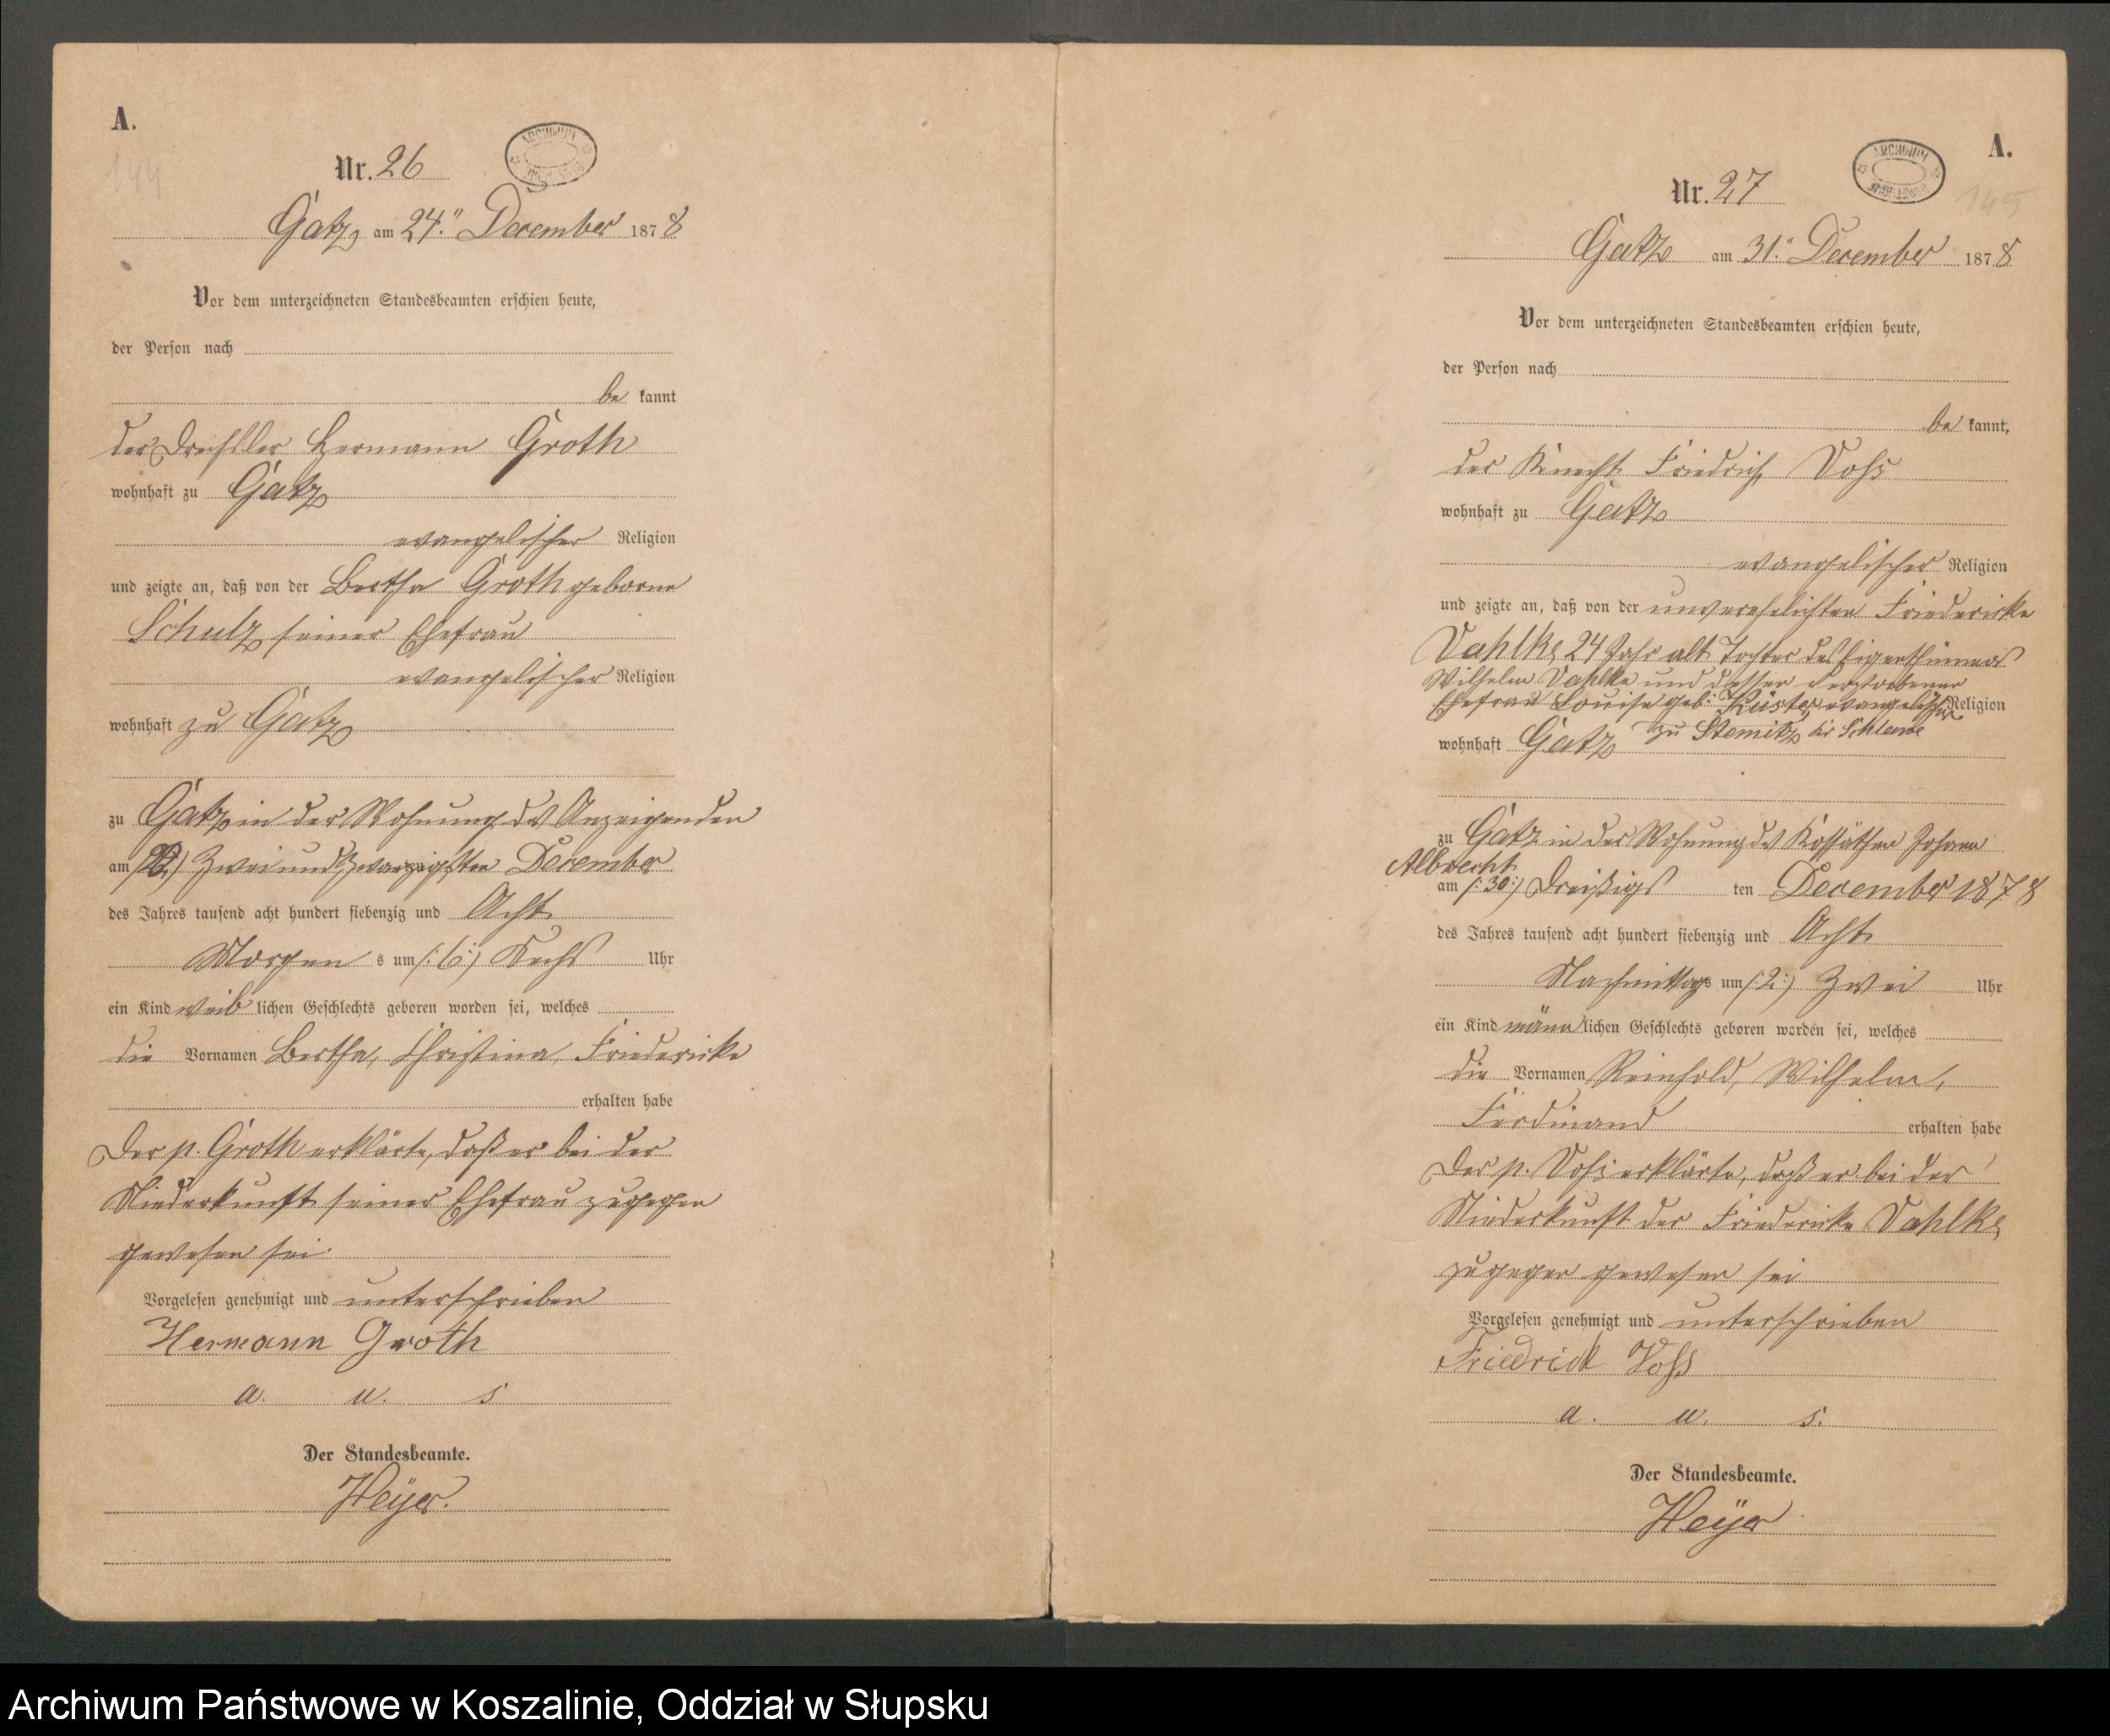 A.
144
ARCHIWUM
Nr. 26
Gatz, am 24." December 1878
Vor dem unterzeichneten Standesbeamten erschien heute,
der Person nach
be kannt
der Drechsler Hermann Groth
wohnhaft zu Gatz
evangelischer Religion
und zeigte an, daß von der Bertha Groth geborne
Schulz seiner Ehefrau
evangelischer Religion
wohnhaft zu Gatz
zu Gatz in der Wohnung des Anzeigenden
am /:22:/ Zwei und Zwanzigsten December
des Jahres tausend acht hundert siebenzig und Acht
Morgen s um /:6:/ Sechs Uhr
ein Kind weib lichen Geschlechts geboren worden sei, welches
die Vornamen Bertha, Christina, Friedericke
erhalten habe
Der p. Groth erklärte, daß er bei der
Niederkunft seiner Ehefrau zugegen
gewesen sei.
Vorgelesen genehmigt und unterschrieben
Hermann Groth
a. u. s
Der Standesbeamte.
Heÿer.
A.
145
ARCHIWUM
Nr. 27
Gatz am 31." December 1878
Vor dem unterzeichneten Standesbeamten erschien heute,
der Person nach
be kannt,
der Knecht Friedrich Voß
wohnhaft zu Gatz
evangelischer Religion
und zeigte an, daß von der unverehelichten Friedericke
Vahlke, 24 Jahr alt Tochter des Eigenthümers
Wilhelm Vahlke und dessen verstorbener
Ehefrau Louise geb: Küster evangelischer Religion
zu Stemitz Kr Schlawe
wohnhaft Gatz
zu Gatz in der Wohnung des Kossäthen Johann
Albrecht
am /:30:/ Dreißigs ten December 1878
des Jahres tausend acht hundert siebenzig und Acht
Nachmittags um /:2:/ Zwei Uhr
ein Kind männ lichen Geschlechts geboren worden sei, welches
die Vornamen Reinhold, Wilhelm,
Ferdinand erhalten habe
Der p. Voß erklärte, daß er bei der
Niederkunft der Friedericke Vahlke,
zugegen gewesen sei
Vorgelesen genehmigt und unterschrieben
Friedrich Voß
a. u. s.
Der Standesbeamte.
Heÿer
Archiwum Państwowe w Koszalinie, Oddział w Słupsku